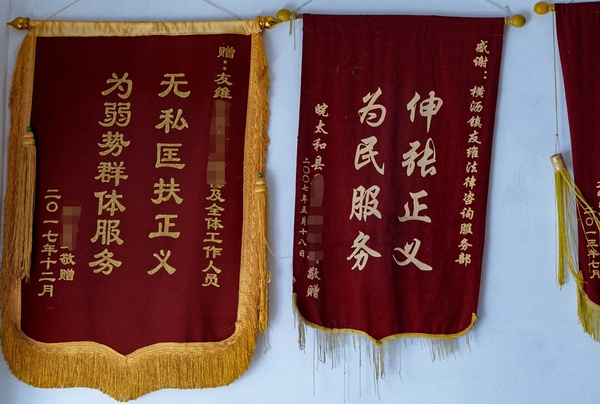 赠：友维
及全体工作人员
无私匡扶正义
为弱势群体服务
敬赠
二〇一七年十二月
感谢：横沥镇友维法律咨询服务部
伸张正义
为民服务
皖太和县
敬赠
二〇〇七年五月十八日
一三年七月